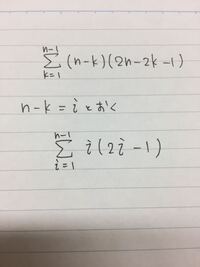 n-1
Σ (n-k)(2n-2k-1)
k=1
n-k=iとおく
n-1
Σ i(2i-1)
i=1